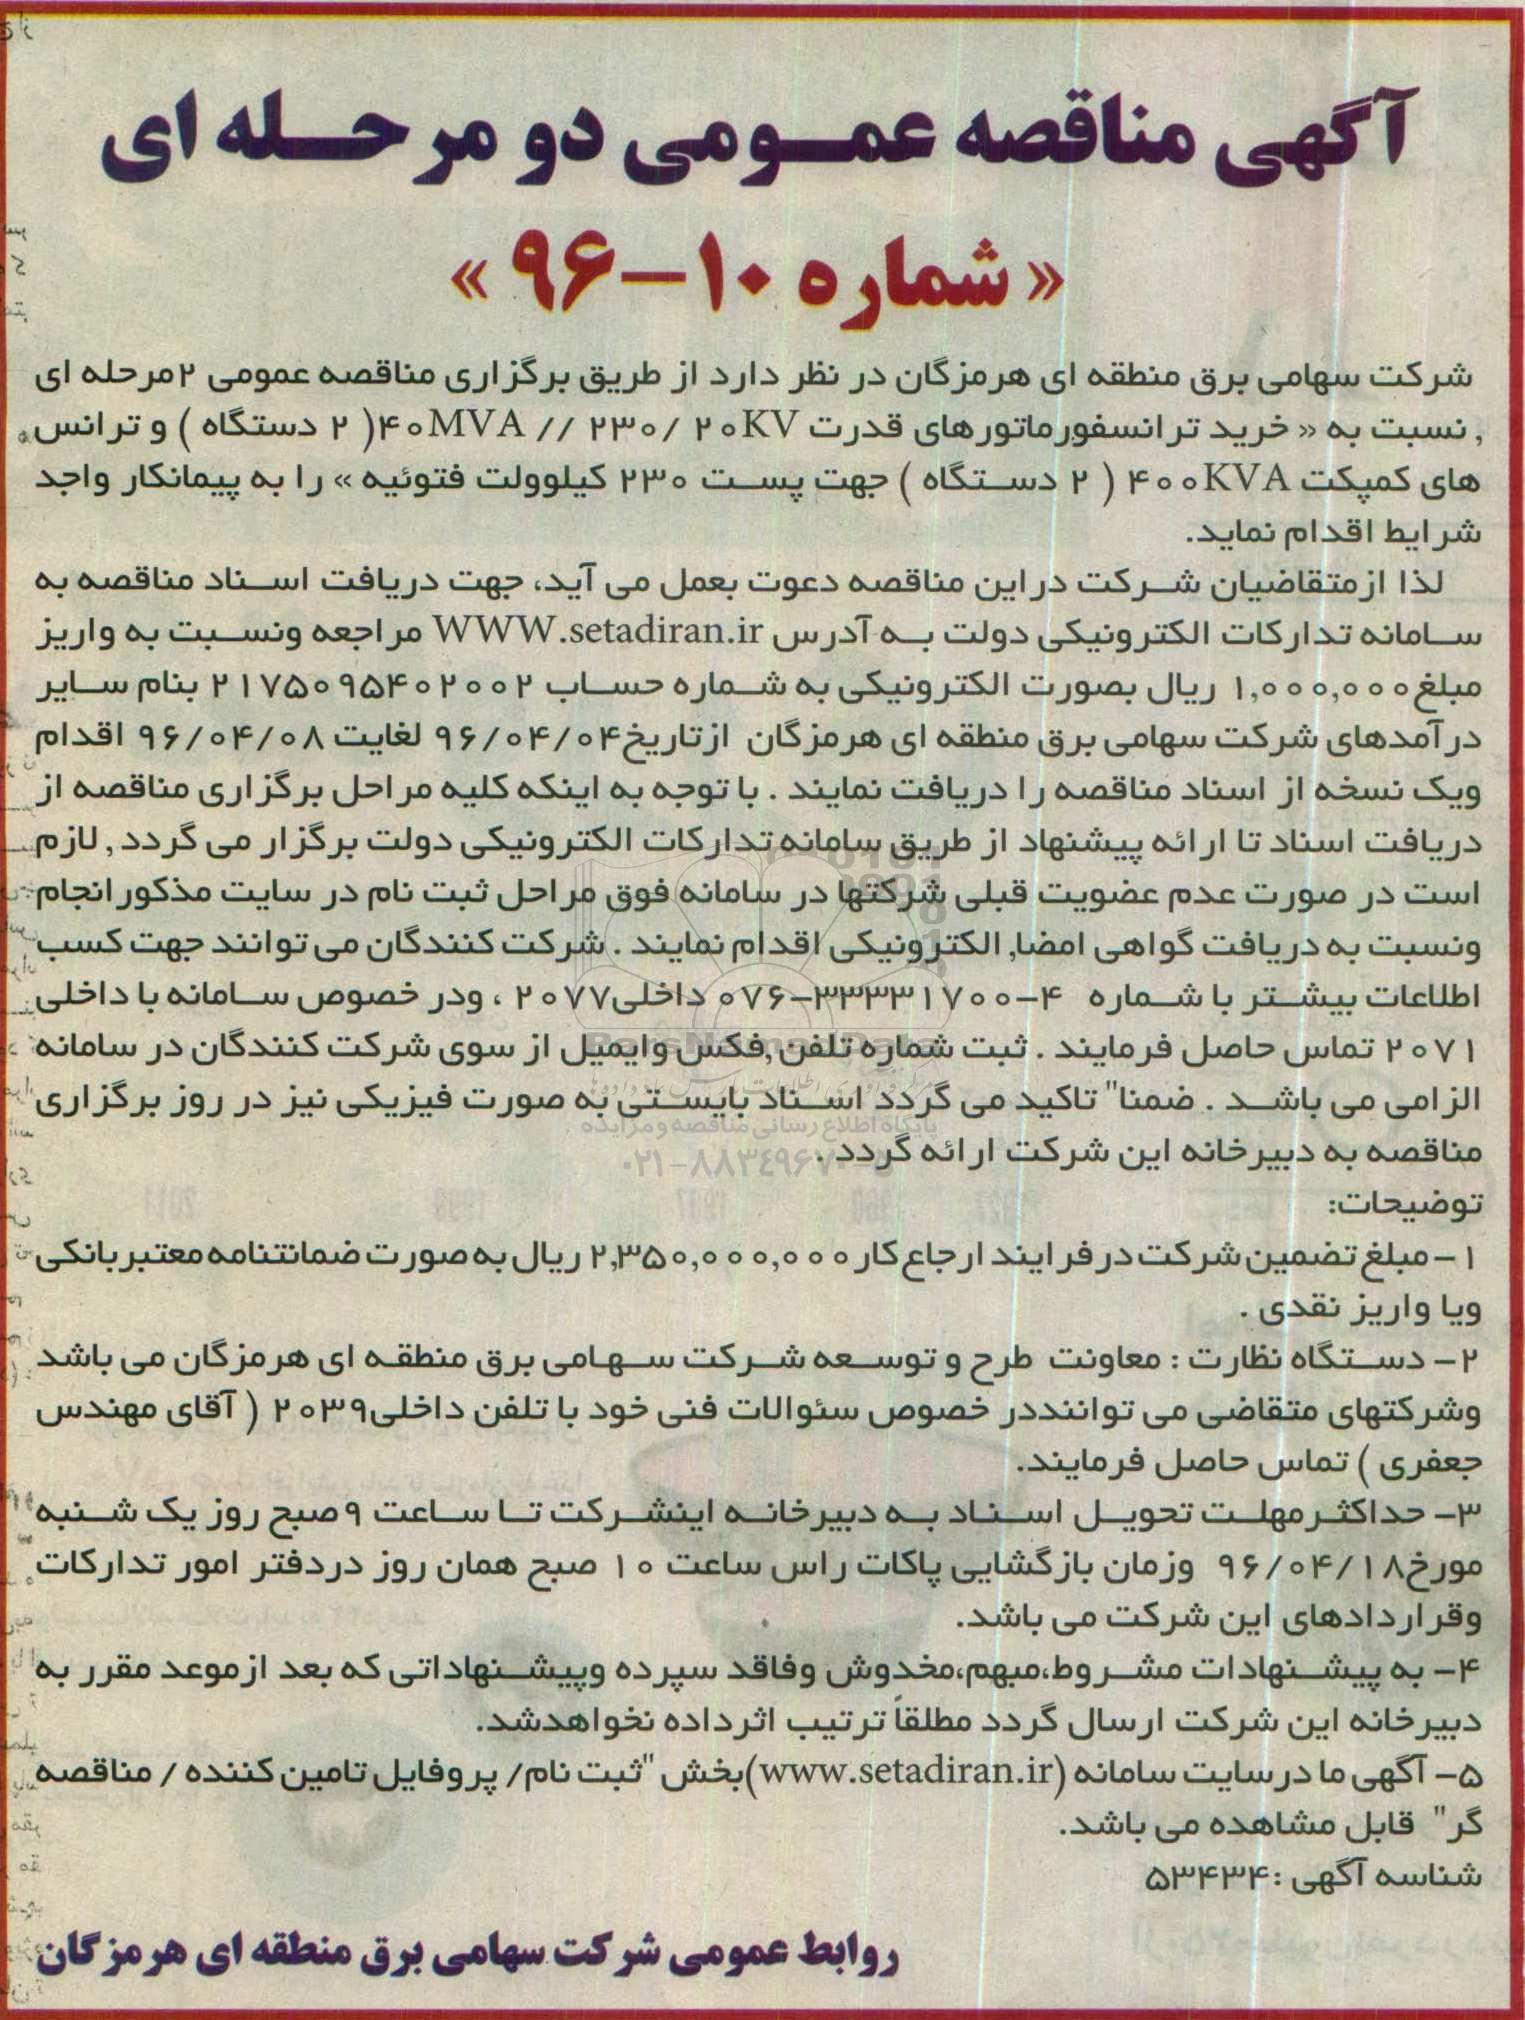 آگهی مناقصه عمومی دو مرحله ای
« شماره ۱۰-۹۶ »
شرکت سهامی برق منطقه ای هرمزگان در نظر دارد از طریق برگزاری مناقصه عمومی ۲مرحله ای
, نسبت به « خرید ترانسفورماتورهای قدرت ۴۰MVA // ۲۳۰/ ۲۰KV( ۲ دستگاه ) و ترانس
های کمپکت ۴۰۰KVA ( ۲ دستگاه ) جهت پست ۲۳۰ کیلوولت فتوئیه » را به پیمانکار واجد
شرایط اقدام نماید.
لذا ازمتقاضیان شرکت دراین مناقصه دعوت بعمل می آید، جهت دریافت اسناد مناقصه به
سامانه تدارکات الکترونیکی دولت به آدرس WWW.setadiran.ir مراجعه ونسبت به واریز
مبلغ۱,۰۰۰,۰۰۰ ریال بصورت الکترونیکی به شماره حساب ۲۱۷۵۰۹۵۴۰۲۰۰۲ بنام سایر
درآمدهای شرکت سهامی برق منطقه ای هرمزگان ازتاریخ۹۶/۰۴/۰۴ لغایت ۹۶/۰۴/۰۸ اقدام
ویک نسخه از اسناد مناقصه را دریافت نمایند . با توجه به اینکه کلیه مراحل برگزاری مناقصه از
دریافت اسناد تا ارائه پیشنهاد از طریق سامانه تدارکات الکترونیکی دولت برگزار می گردد , لازم
است در صورت عدم عضویت قبلی شرکتها در سامانه فوق مراحل ثبت نام در سایت مذکورانجام
ونسبت به دریافت گواهی امضا, الکترونیکی اقدام نمایند . شرکت کنندگان می توانند جهت کسب
اطلاعات بیشتر با شماره ۴-۳۳۳۳۱۷۰۰-۰۷۶ داخلی۲۰۷۷ ، ودر خصوص سامانه با داخلی
۲۰۷۱ تماس حاصل فرمایند . ثبت شماره تلفن ,فکس وایمیل از سوی شرکت کنندگان در سامانه
الزامی می باشد . ضمنا" تاکید می گردد اسناد بایستی به صورت فیزیکی نیز در روز برگزاری
مناقصه به دبیرخانه این شرکت ارائه گردد .
پایگاه اطلاع رسانی مناقصه و مزایده
توضیحات:
۱- مبلغ تضمین شرکت درفرایند ارجاع کار ۲,۳۵۰,۰۰۰,۰۰۰ ریال به صورت ضمانتنامه معتبربانکی
ویا واریز نقدی .
۲- دستگاه نظارت : معاونت طرح و توسعه شرکت سهامی برق منطقه ای هرمزگان می باشد
وشرکتهای متقاضی می تواننددر خصوص سئوالات فنی خود با تلفن داخلی۲۰۳۹ ( آقای مهندس
جعفری ) تماس حاصل فرمایند.
۳- حداکثرمهلت تحویل اسناد به دبیرخانه اینشرکت تا ساعت ۹صبح روز یک شنبه
مورخ۹۶/۰۴/۱۸ وزمان بازگشایی پاکات راس ساعت ۱۰ صبح همان روز دردفتر امور تدارکات
وقراردادهای این شرکت می باشد.
۴- به پیشنهادات مشروط،مبهم،مخدوش وفاقد سپرده وپیشنهاداتی که بعد ازموعد مقرر به
دبیرخانه این شرکت ارسال گردد مطلقاً ترتیب اثرداده نخواهدشد.
۵- آگهی ما درسایت سامانه (www.setadiran.ir)بخش "ثبت نام/ پروفایل تامین کننده / مناقصه
گر" قابل مشاهده می باشد.
شناسه آگهی :۵۳۴۳۴
روابط عمومی شرکت سهامی برق منطقه ای هرمزگان